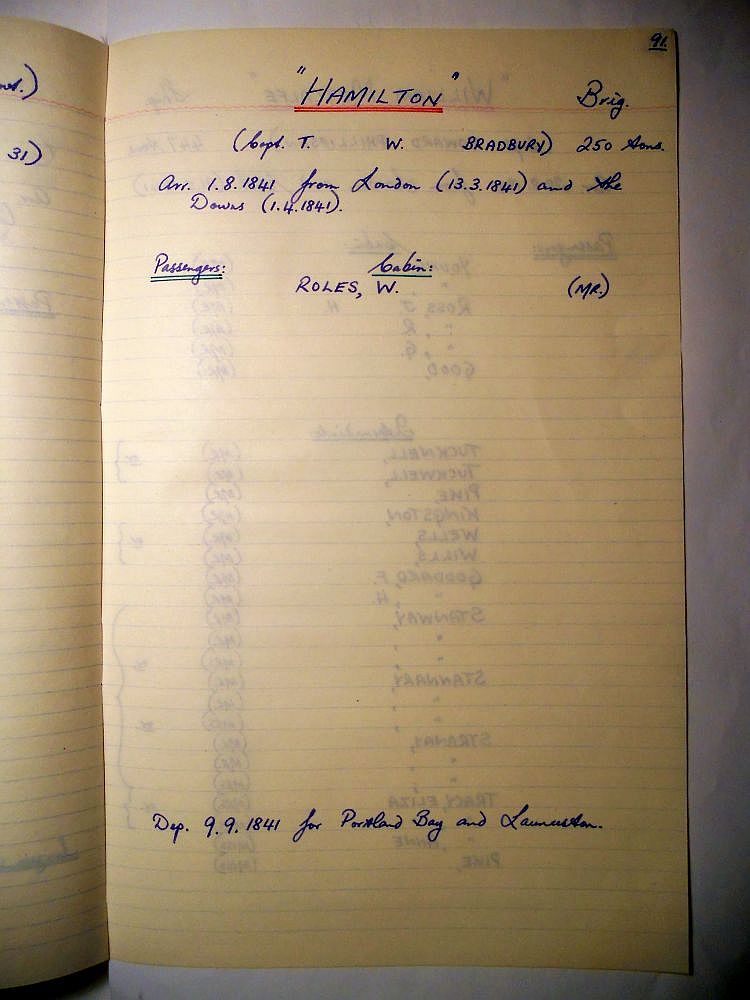 91.
"HAMILTON" Brig.
(Capt. T. W. BRADBURY) 250 tons.
31)
Arr. 1.8.1841 from London (13.3.1841) and the
Downs (1.4.1841).
Passengers: Cabin:
ROLES, W. (MR.)
Dep. 9.9.1841 for Portland Bay and Launceston.